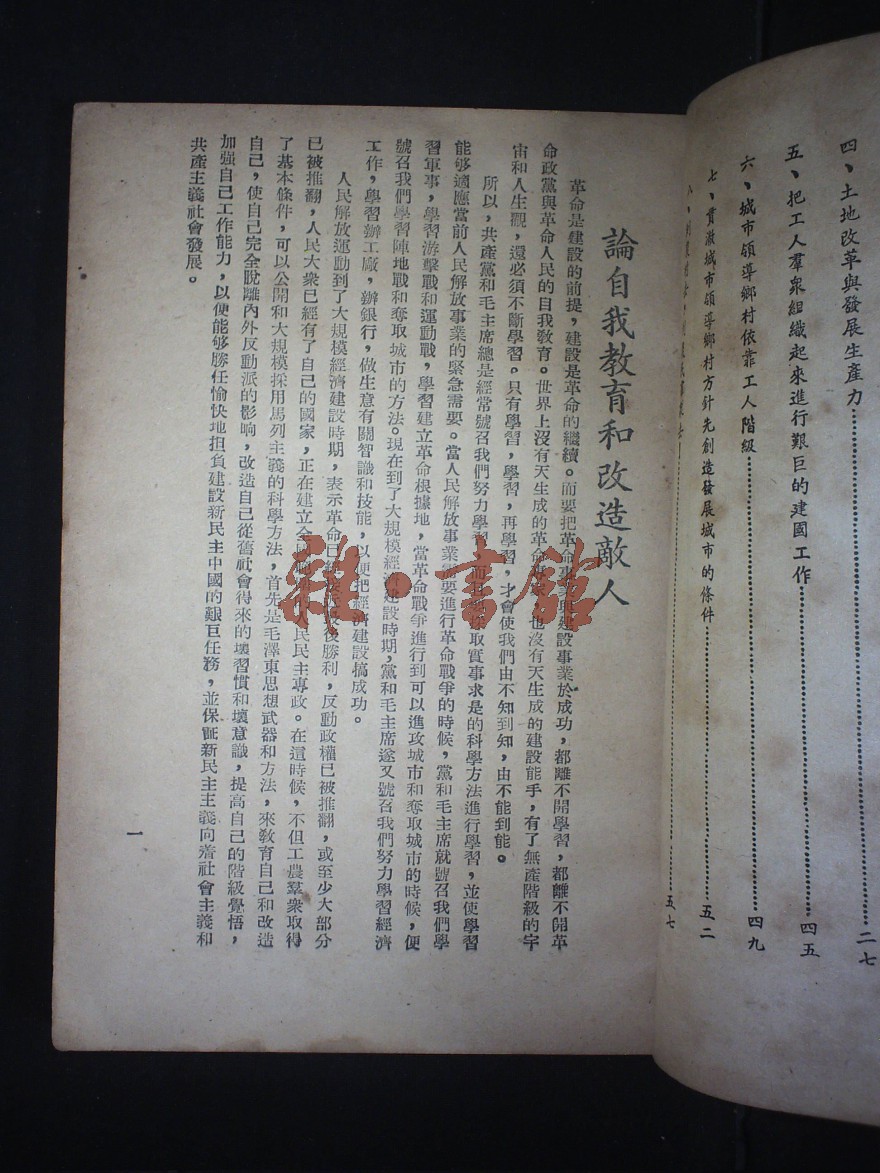 四、土地改革與發展生產力……二七
五、把工人羣衆組織起來進行艱巨的建國工作……四五
六、城市領導鄉村依靠工人階級……四九
七、貫澈城市領導鄉村方針先創造發展城市的條件……五二
五七
論自我教育和改造敵人
革命是建設的前提，建設是革命的繼續。而要把革命事業與建設事業於成功，都離不開學習，都離不開革
命政黨與革命人民的自我教育。世界上沒有天生成的革命專家，也沒有天生成的建設能手，有了無產階級的宇
宙和人生觀，還必須不斷學習。只有學習，學習，再學習，才會使我們由不知到知，由不能到能。
所以，共產黨和毛主席總是經常號召我們努力學習，而且採取實事求是的科學方法進行學習，並使學習
能够適應當前人民解放事業的緊急需要。當人民解放事業需要進行革命戰爭的時候，黨和毛主席就號召我們學
習軍事，學習游擊戰和運動戰，學習建立革命根據地，當革命戰爭進行到可以進攻城市和奪取城市的時候，便
號召我們學習陣地戰和奪取城市的方法。現在到了大規模經濟建設時期，黨和毛主席遂又號召我們努力學習經濟
工作，學習辦工廠，辦銀行，做生意有關智識和技能，以便把經濟建設搞成功。
人民解放運動到了大規模經濟建設時期，表示革命已經接近最後勝利，反動政權已被推翻，或至少大部分
已被推翻，人民大衆已經有了自己的國家，正在建立全國的人民民主專政。在這時候，不但工農羣衆取得
了基本條件，可以公開和大規模採用馬列主義的科學方法，首先是毛澤東思想武器和方法，來敎育自己和改造
自己，使自己完全脫離內外反動派的影响，改造自己從舊社會得來的壞習慣和壞意識，提高自己的階級覺悟，
加强自己工作能力，以便能够勝任愉快地担負建設新民主中國的艱巨任務，並保証新民主主義向着社會主義和
共產主義社會發展。
一
雜·書館